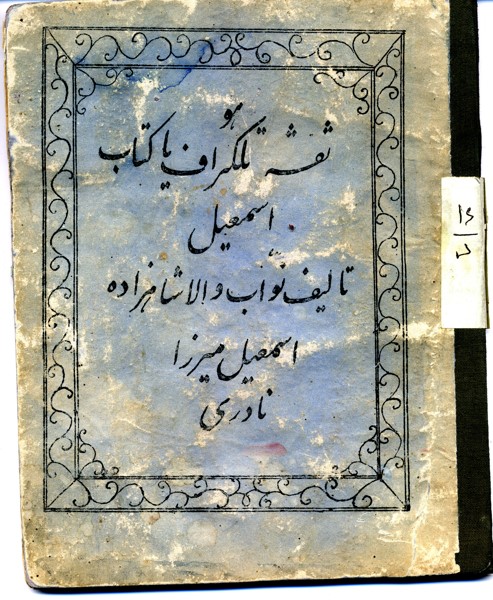 هو
نقشه تلکراف یا کتاب
اسمعیل
تالیف نواب والا شاهزاده
اسمعیل میرزا
نادری